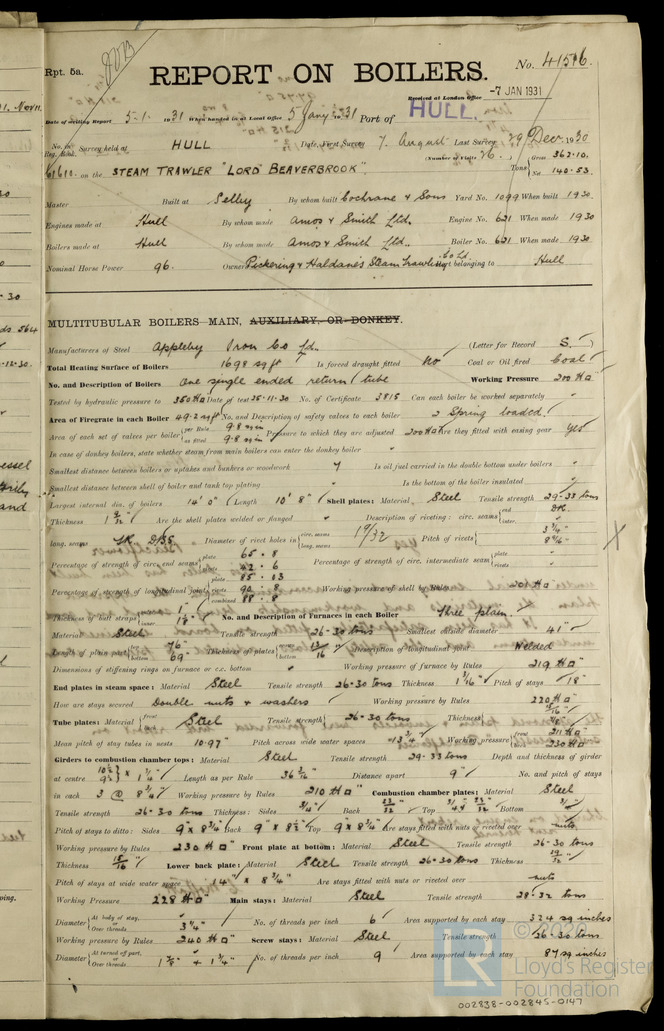 Rpt. 5a.
No. 41516.
REPORT ON BOILERS.
Received at London Office -7 JAN 1931
Date of writing Report 5-1- 1931 When handed in at Local Office 5 Jany 1931 Port of HULL.
No. in Survey held at HULL Date, First Survey 7. August Last Survey 29 Decr 1930
Reg. Book. (Number of Visits 76.) Gross 362.10.
61611. on the STEAM TRAWLER "LORD BEAVERBROOK". Tons Net 140.53.
Master Built at Selby By whom built Cochrane & Sons Yard No. 1099 When built 1930
Engines made at Hull By whom made Amos & Smith Ltd. Engine No. 621 When made 1930
Boilers made at Hull By whom made Amos & Smith Ltd. Boiler No. 621 When made 1930
Nominal Horse Power 96. Owners Pickering & Haldane's Steam Trawling Co Ld. Port belonging to Hull
MULTITUBULAR BOILERS MAIN, AUXILIARY, OR DONKEY.
Manufacturers of Steel Appleby Iron Co Ld. (Letter for Record S.)
Total Heating Surface of Boilers 1698 sq ft Is forced draught fitted No Coal or Oil fired Coal
No. and Description of Boilers One single ended return tube Working Pressure 200 #□"
Tested by hydraulic pressure to 350 #□" Date of test 25.11.30 No. of Certificate 3815 Can each boiler be worked separately
Area of Firegrate in each Boiler 49.2 sq ft No. and Description of safety valves to each boiler 2 Spring loaded.
Area of each set of valves per boiler per Rule 9.8 as fitted 9.8 Pressure to which they are adjusted 200 #□" Are they fitted with easing gear Yes
In case of donkey boilers, state whether steam from main boilers can enter the donkey boiler
Smallest distance between boilers or uptakes and bunkers or woodwork Is oil fuel carried in the double bottom under boilers
Smallest distance between shell of boiler and tank top plating Is the bottom of the boiler insulated
Largest internal dia. of boilers 14' 0" Length 10' 8" Shell plates: Material Steel Tensile strength 29-33 tons
Thickness 1 9/32" Are the shell plates welded or flanged Description of riveting: circ. seams end DR. inter.
long. seams Diameter of rivet holes in circ. seams long. seams 1 9/32 Pitch of rivets 3 3/4"
Percentage of strength of circ. end seams plate 65.8 rivets 42.6 Percentage of strength of circ. intermediate seam plate rivets
Percentage of strength of longitudinal joint plate 85.13 rivets 90.8 combined 88.8 Working pressure of shell by Rules 201 #□"
Thickness of butt straps outer 1" inner 1 1/8" No. and Description of Furnaces in each Boiler Three plain.
Material Steel Tensile strength 26-30 tons Smallest outside diameter 41"
Length of plain part top 76" bottom 69" Thickness of plates crown bottom 13/16" Description of longitudinal joint Welded
Dimensions of stiffening rings on furnace or c.c. bottom Working pressure of furnace by Rules 219 #□"
End plates in steam space: Material Steel Tensile strength 26-30 tons Thickness 1 3/16" Pitch of stays 18"
How are stays secured Double nuts & washers Working pressure by Rules 220 #□"
Tube plates: Material front back Steel Tensile strength 26-30 tons Thickness
Mean pitch of stay tubes in nests 10.97" Pitch across wide water spaces 13 3/4" Working pressure front 211 #□" back 230 #□"
Girders to combustion chamber tops: Material Steel Tensile strength 29-33 tons Depth and thickness of girder
at centre 10 1/2" 9 1/2" × 1 1/4" Length as per Rule 36 3/16" Distance apart 9" No. and pitch of stays
in each 3 @ 8 3/4" Working pressure by Rules 210 #□" Combustion chamber plates: Material Steel
Tensile strength 26-30 tons Thickness: Sides 3/4" Back 23/32" Top 3/4" & 23/32" Bottom 3/4"
Pitch of stays to ditto: Sides 9" × 8 3/4" Back 9" × 8 1/2" Top 9" × 8 3/4" Are stays fitted with nuts or riveted over nuts
Working pressure by Rules 230 #□" Front plate at bottom: Material Steel Tensile strength 26-30 tons
Thickness 15/16" Lower back plate: Material Steel Tensile strength 26-30 tons Thickness 29/32"
Pitch of stays at wide water space 14" × 8 3/4" Are stays fitted with nuts or riveted over nuts
Working Pressure 228 #□" Main stays: Material Steel Tensile strength 28-32 tons
Diameter At body of stay, or Over threads 3 1/4" No. of threads per inch 6 Area supported by each stay 324 sq inches
Working pressure by Rules 240 #□" Screw stays: Material Steel Tensile strength 26-30 tons
Diameter At turned off part, or Over threads 1 5/8" + 1 3/4" No. of threads per inch 9 Area supported by each stay 87 sq inches
© 2020
LR
Lloyd's Register
Foundation
002838-002845-0147